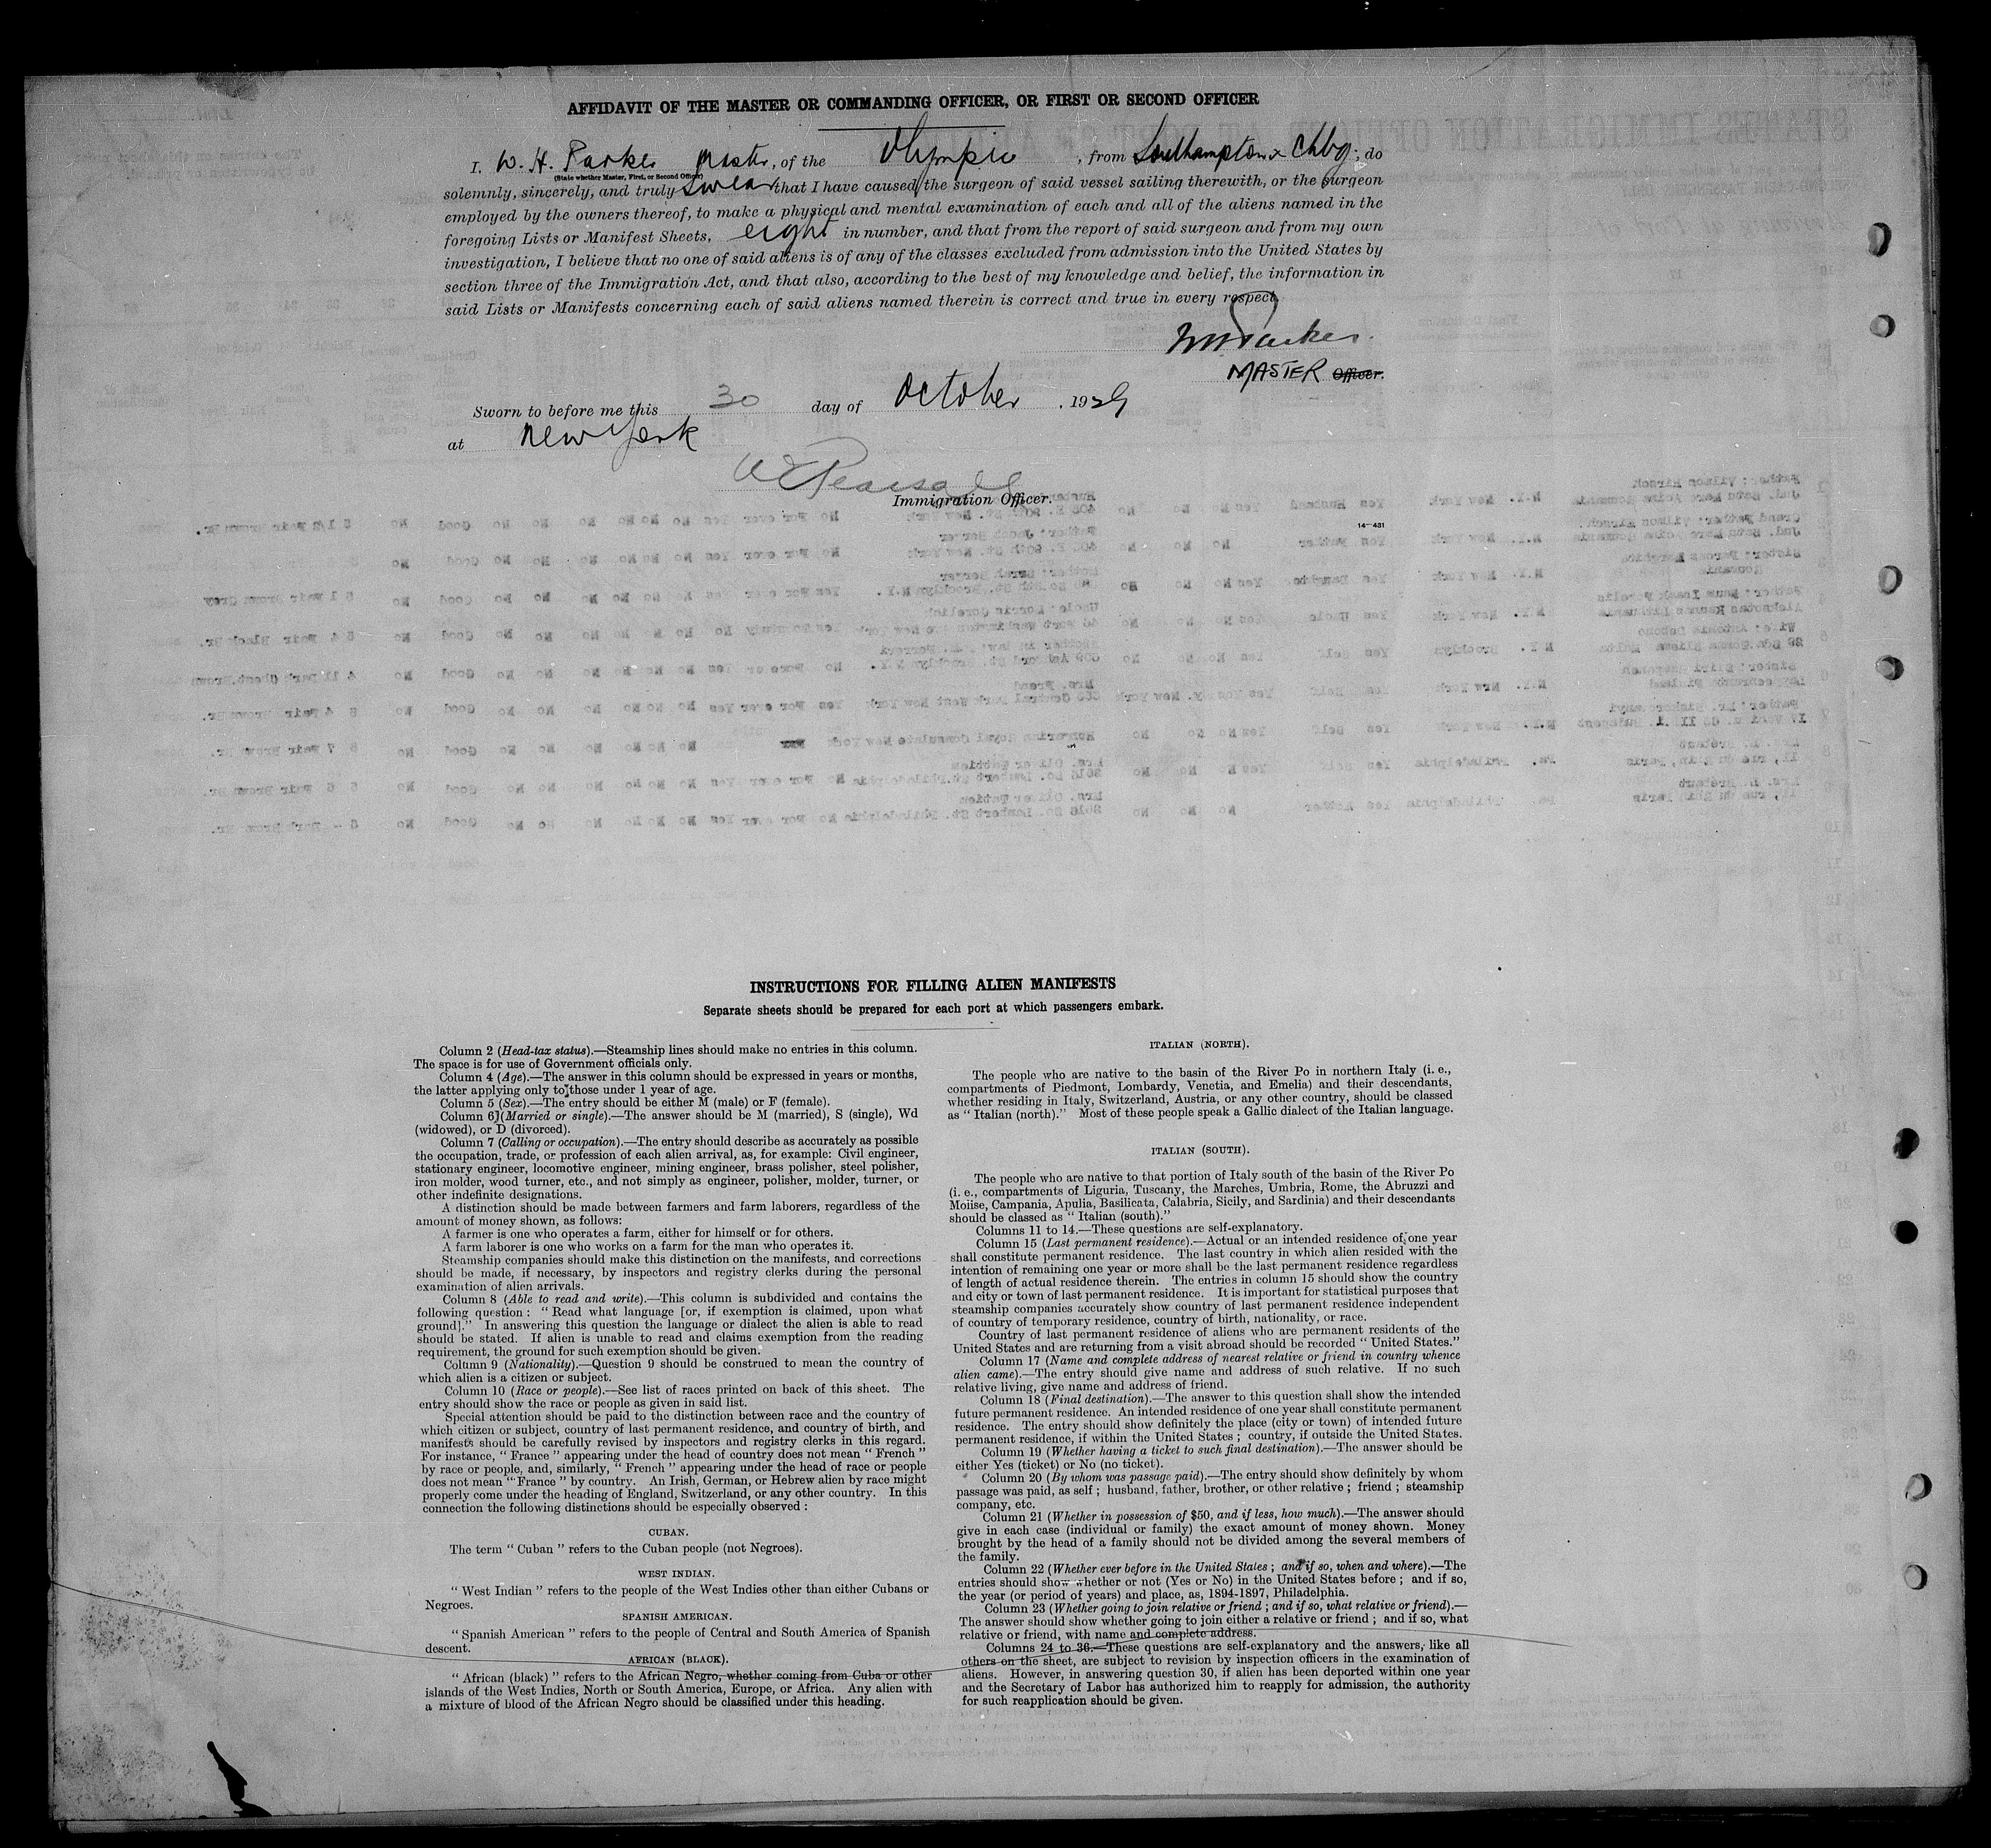 AFFIDAVIT OF THE MASTER OR COMMANDING OFFICER, OR FIRST OR SECOND OFFICER
I, W. H. Parker Master, of the Olympic, from Southampton & Chbg; do
(State whether Master, First, or Second Officer)
solemnly, sincerely, and truly swear that I have caused the surgeon of said vessel sailing therewith, or the surgeon
employed by the owners thereof, to make a physical and mental examination of each and all of the aliens named in the
foregoing Lists or Manifest Sheets, eight in number, and that from the report of said surgeon and from my own
investigation, I believe that no one of said aliens is of any of the classes excluded from admission into the United States by
section three of the Immigration Act, and that also, according to the best of my knowledge and belief, the information in
said Lists or Manifests concerning each of said aliens named therein is correct and true in every respect.
W H Parker.
MASTER Officer.
Sworn to before me this 30 day of October, 1929
at New York
W E Pearsall
Immigration Officer.
14—431
INSTRUCTIONS FOR FILLING ALIEN MANIFESTS
Separate sheets should be prepared for each port at which passengers embark.
Column 2 (Head-tax status).—Steamship lines should make no entries in this column.
The space is for use of Government officials only.
Column 4 (Age).—The answer in this column should be expressed in years or months,
the latter applying only to those under 1 year of age.
Column 5 (Sex).—The entry should be either M (male) or F (female).
Column 6 (Married or single).—The answer should be M (married), S (single), Wd
(widowed), or D (divorced).
Column 7 (Calling or occupation).—The entry should describe as accurately as possible
the occupation, trade, or profession of each alien arrival, as, for example: Civil engineer,
stationary engineer, locomotive engineer, mining engineer, brass polisher, steel polisher,
iron molder, wood turner, etc., and not simply as engineer, polisher, molder, turner, or
other indefinite designations.
A distinction should be made between farmers and farm laborers, regardless of the
amount of money shown, as follows:
A farmer is one who operates a farm, either for himself or for others.
A farm laborer is one who works on a farm for the man who operates it.
Steamship companies should make this distinction on the manifests, and corrections
should be made, if necessary, by inspectors and registry clerks during the personal
examination of alien arrivals.
Column 8 (Able to read and write).—This column is subdivided and contains the
following question: "Read what language [or, if exemption is claimed, upon what
ground]." In answering this question the language or dialect the alien is able to read
should be stated. If alien is unable to read and claims exemption from the reading
requirement, the ground for such exemption should be given.
Column 9 (Nationality).—Question 9 should be construed to mean the country of
which alien is a citizen or subject.
Column 10 (Race or people).—See list of races printed on back of this sheet. The
entry should show the race or people as given in said list.
Special attention should be paid to the distinction between race and the country of
which citizen or subject, country of last permanent residence, and country of birth, and
manifests should be carefully revised by inspectors and registry clerks in this regard.
For instance, "France" appearing under the head of country does not mean "French"
by race or people, and, similarly, "French" appearing under the head of race or people
does not mean "France" by country. An Irish, German, or Hebrew alien by race might
properly come under the heading of England, Switzerland, or any other country. In this
connection the following distinctions should be especially observed:
CUBAN.
The term "Cuban" refers to the Cuban people (not Negroes).
WEST INDIAN.
"West Indian" refers to the people of the West Indies other than either Cubans or
Negroes.
SPANISH AMERICAN.
"Spanish American" refers to the people of Central and South America of Spanish
descent.
AFRICAN (BLACK).
"African (black)" refers to the African Negro, whether coming from Cuba or other
islands of the West Indies, North or South America, Europe, or Africa. Any alien with
a mixture of blood of the African Negro should be classified under this heading.
ITALIAN (NORTH).
The people who are native to the basin of the River Po in northern Italy (i. e.,
compartments of Piedmont, Lombardy, Venetia, and Emelia) and their descendants,
whether residing in Italy, Switzerland, Austria, or any other country, should be classed
as "Italian (north)." Most of these people speak a Gallic dialect of the Italian language.
ITALIAN (SOUTH).
The people who are native to that portion of Italy south of the basin of the River Po
(i. e., compartments of Liguria, Tuscany, the Marches, Umbria, Rome, the Abruzzi and
Moiise, Campania, Apulia, Basilicata, Calabria, Sicily, and Sardinia) and their descendants
should be classed as "Italian (south)."
Columns 11 to 14.—These questions are self-explanatory.
Column 15 (Last permanent residence).—Actual or an intended residence of one year
shall constitute permanent residence. The last country in which alien resided with the
intention of remaining one year or more shall be the last permanent residence regardless
of length of actual residence therein. The entries in column 15 should show the country
and city or town of last permanent residence. It is important for statistical purposes that
steamship companies accurately show country of last permanent residence independent
of country of temporary residence, country of birth, nationality, or race.
Country of last permanent residence of aliens who are permanent residents of the
United States and are returning from a visit abroad should be recorded "United States."
Column 17 (Name and complete address of nearest relative or friend in country whence
alien came).—The entry should give name and address of such relative. If no such
relative living, give name and address of friend.
Column 18 (Final destination).—The answer to this question shall show the intended
future permanent residence. An intended residence of one year shall constitute permanent
residence. The entry should show definitely the place (city or town) of intended future
permanent residence, if within the United States; country, if outside the United States.
Column 19 (Whether having a ticket to such final destination).—The answer should be
either Yes (ticket) or No (no ticket).
Column 20 (By whom was passage paid).—The entry should show definitely by whom
passage was paid, as self; husband, father, brother, or other relative; friend; steamship
company, etc.
Column 21 (Whether in possession of $50, and if less, how much).—The answer should
give in each case (individual or family) the exact amount of money shown. Money
brought by the head of a family should not be divided among the several members of
the family.
Column 22 (Whether ever before in the United States; and if so, when and where).—The
entries should show whether or not (Yes or No) in the United States before; and if so,
the year (or period of years) and place, as, 1894-1897, Philadelphia.
Column 23 (Whether going to join relative or friend; and if so, what relative or friend).—
The answer should show whether going to join either a relative or friend; and if so, what
relative or friend, with name and complete address.
Columns 24 to 36.—These questions are self-explanatory and the answers, like all
others on the sheet, are subject to revision by inspection officers in the examination of
aliens. However, in answering question 30, if alien has been deported within one year
and the Secretary of Labor has authorized him to reapply for admission, the authority
for such reapplication should be given.